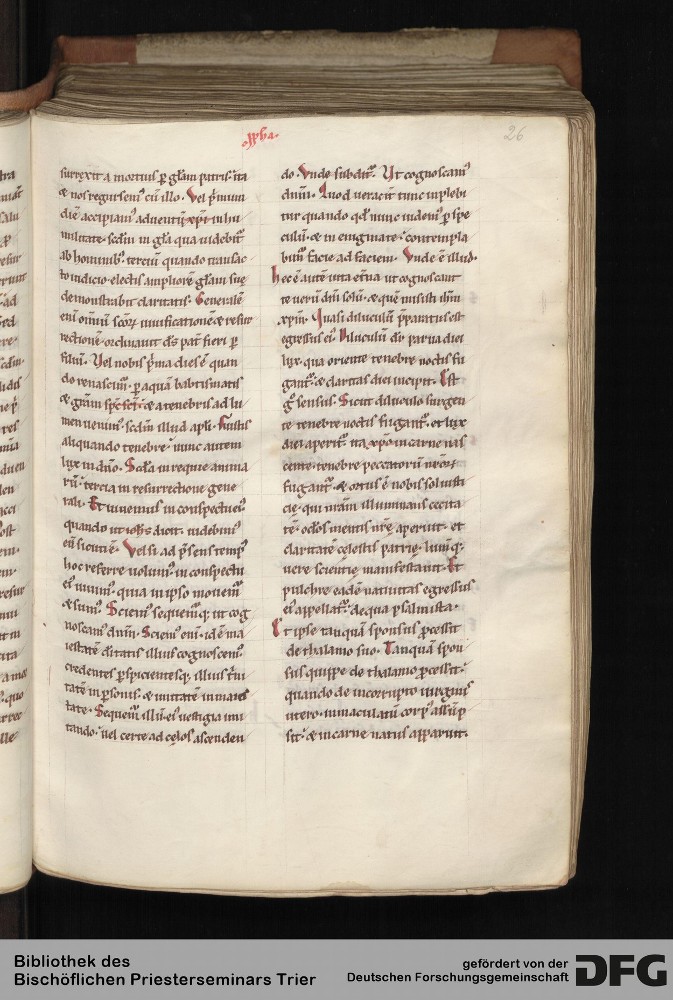 .pp̄ha.
26
surrexit a mortuis ꝑ gl̄am patris · ita
& nos resurgemꝰ cū illo · Vel p̄mum
diē accipiamꝰ aduentū xp̄i in hu
militate · sc̄dm in gl̄a qua uidebit᷑
ab hominibꝫ · tertiū quando tran lac
to iudicio · electis ampliorē gl̄am suę
demonstrabit claritatis · Generalē
eni omniū sc̄oꝝ uiuificationē & resur
rectionē · ordinauit dſ pat̄ fieri ꝑ
filiū · Vel nobis p̄ma dies ē quan
do renascimꝰ · ꝑ aquā babtismatis
& gr̄am spc̄ sc̄i · & a tenebris ad lu
men uenimꝰ · sc̄dm illud apl̄i · Fuistis
aliquando tenebre · nunc autem
lux in dn̄o · Sc̄da in requie anima
rū · tercia in resurrectione gene
rali · Et uiuemus in conspectu eiꝰ
quando ut ioh̄s dicit · uidebimꝰ
eū sicuti ē · Vel si ad p̄sens tempꝰ
hoc referre uolumꝰ · in conspectu
eiꝰ uiuimꝰ · quia in ipso mouem᷑
& sumꝰ · Sciemꝰ sequemurqꝫ ut cog
noscamꝰ dn̄m · Sciemꝰ eni · id ē ma
iestatē diuitatis illius cognoscemꝰ
credentes ꝑspicientesqꝫ illius t̄ni
tatē in ꝑsonis · & unitatē in maies
tate · Sequem᷑ illū · eiꝰ uestigia imi
tando · uel certe ad cęlos ascenden
do · Vnde subdit᷑ · Ut cognoscamꝰ
dn̄m · Quod ueracit̄ tunc inplebi
tur quando qd̄ nunc uidemꝰ ꝑ spe
culū · & in enigmate · contempla
bim᷑ facie ad faciem · Vnde ē illud ·
Hec ē autē uita et̄na ut cognoscant
te uerū dm̄ solū · & quē misisti ih̄m
xpm̄ · Quasi diluculū p̄paratus est
egressus eiꝰ · Diluculū dr̄ parua diei
lux · qua oriente tenebre noctis fu
gant᷑ · & claritas diei incipit · Est
gͦ sensus · Sicut diluculo surgen
te tenebre noctis fugant᷑ · et lux
diei aperit᷑ · ita xpō in carne nas
cente · tenebre peccatorū nr̄oꝝ
fugant᷑ · & ortus ē nobis sol iusti
cię · qui mām illuminans cecita
tē · oclos mentis nr̄ę aperuit · et
claritatē cęlestis patrię · lumqꝫ
uere scientię manifestauit · Et
pulchre eadē natiuitas egressus
eiꝰ appellat᷑ · de qua psalmista ·
Et ipse tanquā sponsus ꝓcessit
de thalamo suo · Tanquā spon
sus quippe de thalamo ꝓcessit ·
quando de incorrupto uirginis
utero · inmaculatū corpꝰ assūp
sit · & in carne natus apparuit.
Bibliothek des
Bischöflichen Priesterseminars Trier
gefördert von der
Deutschen Forschungsgemeinschaft
DFG